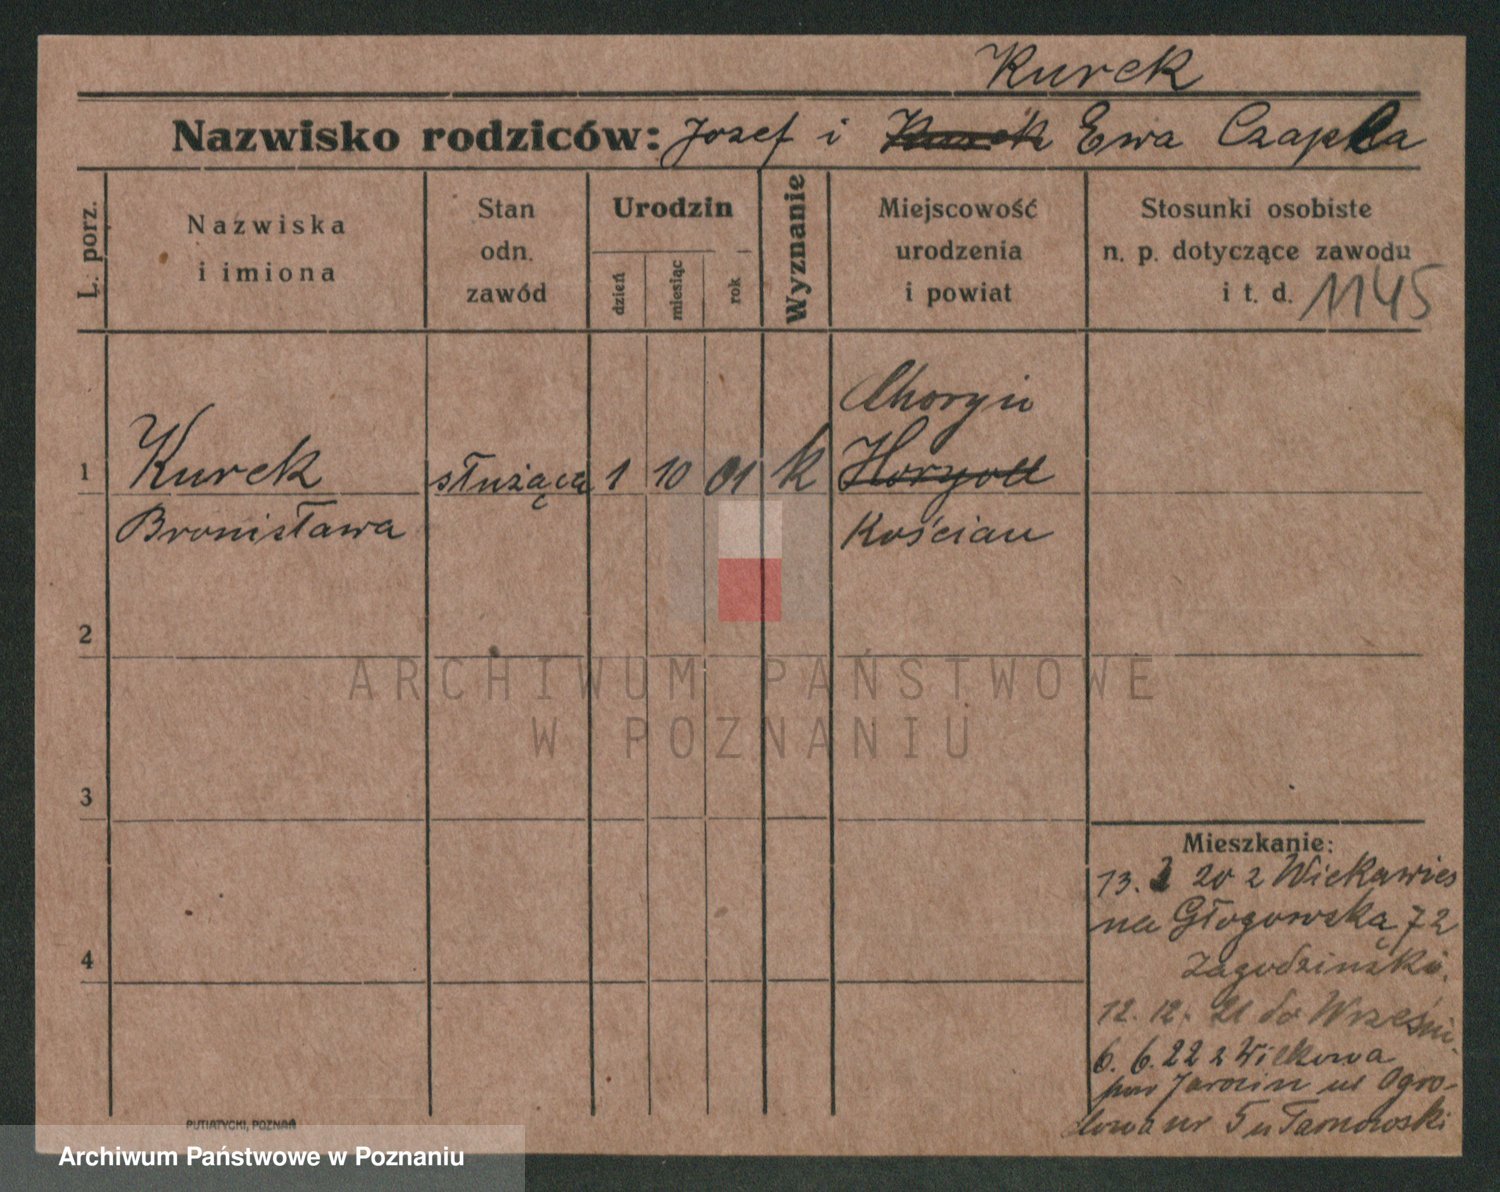 Kurek
Nazwisko rodziców: Jozef i Kurek Ewa Czapla
L. porz.
Nazwiska
i imiona
Stan
odn.
zawód
Urodzin
dzień
miesiąc
rok
Wyznanie
Miejscowość
urodzenia
i powiat
Stosunki osobiste
n. p. dotyczące zawodu
i t. d. 1145
Choryń
1 Kurek służąca 1 10 01 k Horyoll
Bronisława Kościan
2
ARCHIWUM PAŃSTWOWE
W POZNANIU
3
Mieszkanie:
13. 3 20 z Wiekawies
na Głogowską 72
Zagodziński.
4
12. 12. 21 do Wrześni.
6. 6. 22 z Wilkowa
pow Jarocin ul Ogro-
dowa nr 5 u Tarnowski
PUTIATYCKI, POZNAŃ
Archiwum Państwowe w Poznaniu